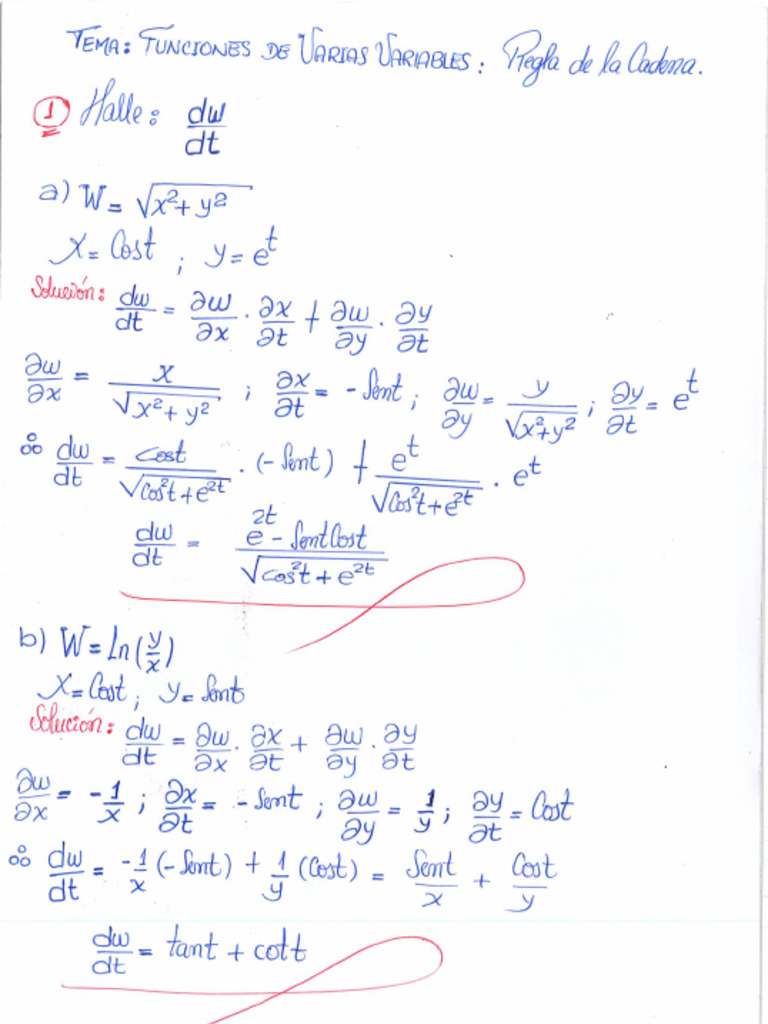 TEMA: FUNCIONES DE VARIAS VARIABLES: Regla de la Cadena.
① Halle: dw/dt
a) W = √(x²+y²)
x = Cost ; y = e^t
Solución: dw/dt = ∂w/∂x · ∂x/∂t + ∂w/∂y · ∂y/∂t
∂w/∂x = x/√(x²+y²) ; ∂x/∂t = -Sent ; ∂w/∂y = y/√(x²+y²) ; ∂y/∂t = e^t
∴ dw/dt = Cost/√(Cos²t+e^2t) · (-Sent) + e^t/√(Cos²t+e^2t) · e^t
dw/dt = (e^2t - SentCost)/√(cos²t+e^2t)
b) W = Ln(y/x)
x = Cost ; y = Sent
Solución: dw/dt = ∂w/∂x · ∂x/∂t + ∂w/∂y · ∂y/∂t
∂w/∂x = -1/x ; ∂x/∂t = -Sent ; ∂w/∂y = 1/y ; ∂y/∂t = Cost
∴ dw/dt = -1/x (-Sent) + 1/y (Cost) = Sent/x + Cost/y
dw/dt = tant + cott